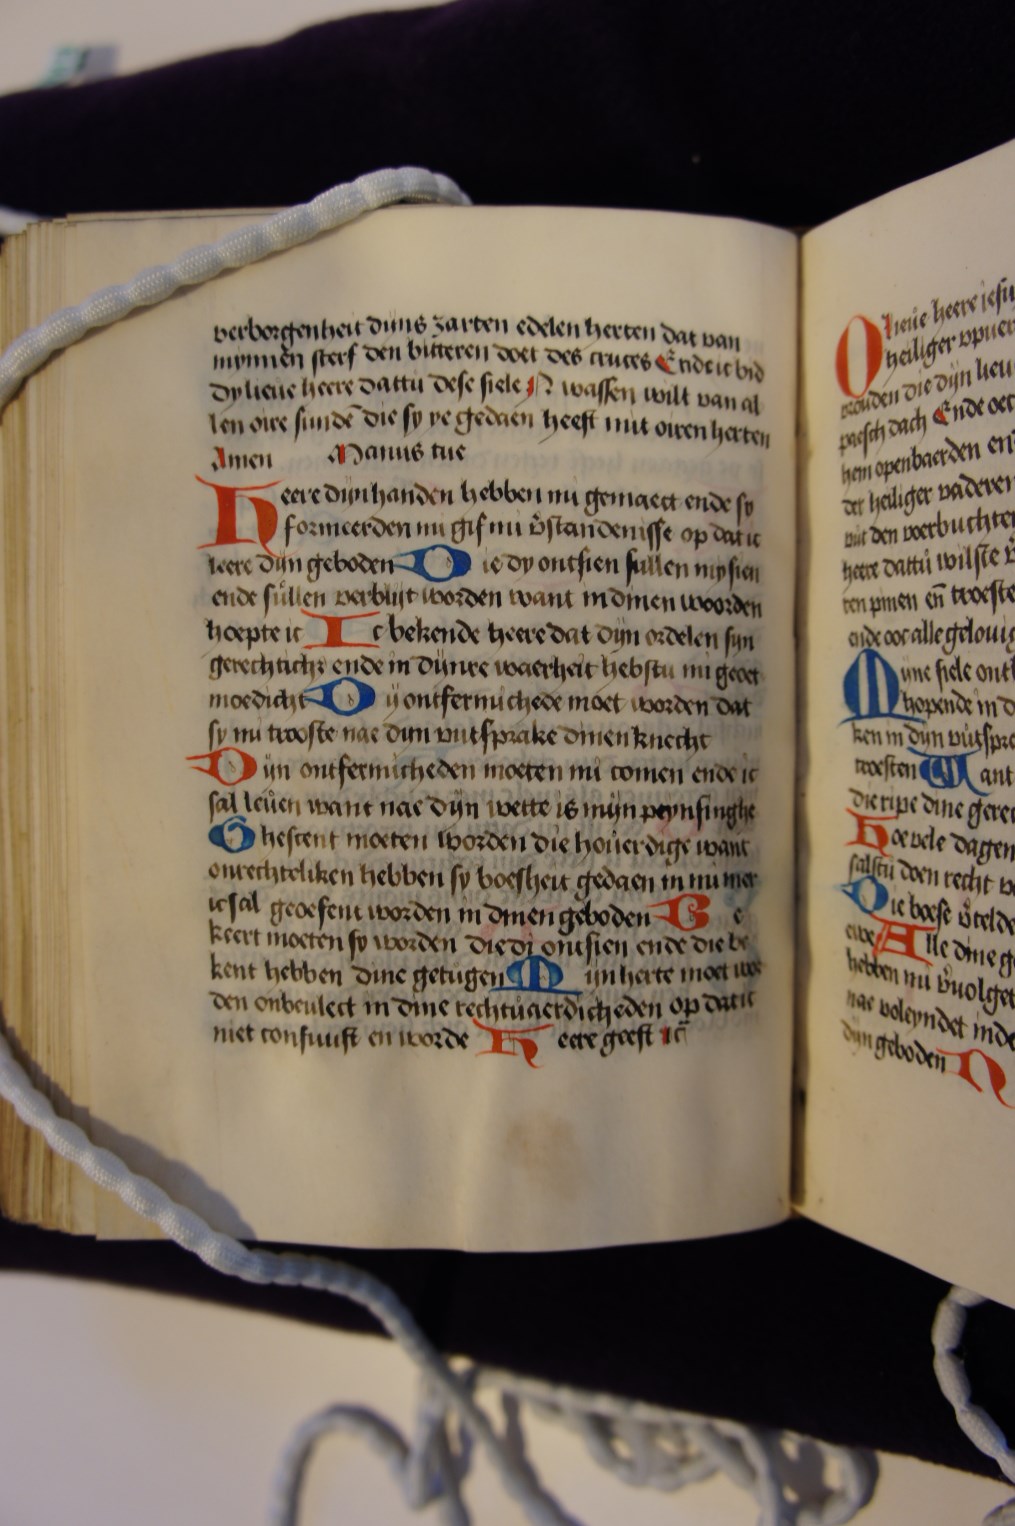 verborgenheit dijns zarten edelen herten dat van
mynnen sterf den bitteren doet des cruces Ende ic bid
dy lieue heere dattu dese siele N wassen wilt van al
len oire sunden die sy ye gedaen heeft mit oiren herten
Amen Manus tue
Heere dijn handen hebben mi gemaect ende sy
formeerden mi gif mi v̄standenisse op dat ic
leere dijn geboden Die dy ontsien sullen my sien
ende sullen verblijt worden want in dinen woorden
hoepte ic Ic bekende heere dat dijn ordelen sijn
gerechticht ende in dijnre waerheit hebstu mi geoet
moedicht Dij ontfermichede moet worden dat
sy mi trooste nae dijn uutsprake dinen knecht
Dijn ontfermicheden moeten mi comen ende ic
sal leuen want nae dijn wette is mijn peynsinghe
Ghescent moeten worden die houerdige want
onrechteliken hebben sy boesheit gedaen in mi mer
ic sal geoefent worden in dinen geboden Be
keert moeten sy worden die dj ontsien ende die be
kent hebben dine getugen Mijn herte moet wor
den onbeulect in dine rechtuaerdicheden op dat ic
niet confuust en worde Heere geeft ic̄
O lieue heere iesu
heiliger
vrouden die dijn lieu
paesch dach Ende oec
hem openbaerden en
der heiliger vaderen
uut den voerbuchten
heere dattu wilste
ten pinen en̄ trooste
ende ooc alle gelouig
Mijne siele ont
hopende in d
ken in dijn uutspra
troesten Want
die ripe dine gerec
Hoe vele dagen
salstu doen recht
Die boese v̄telde
ewe Alle dine ge
hebben mi v̄uolget
nae voleyndet inde
dijn geboden N